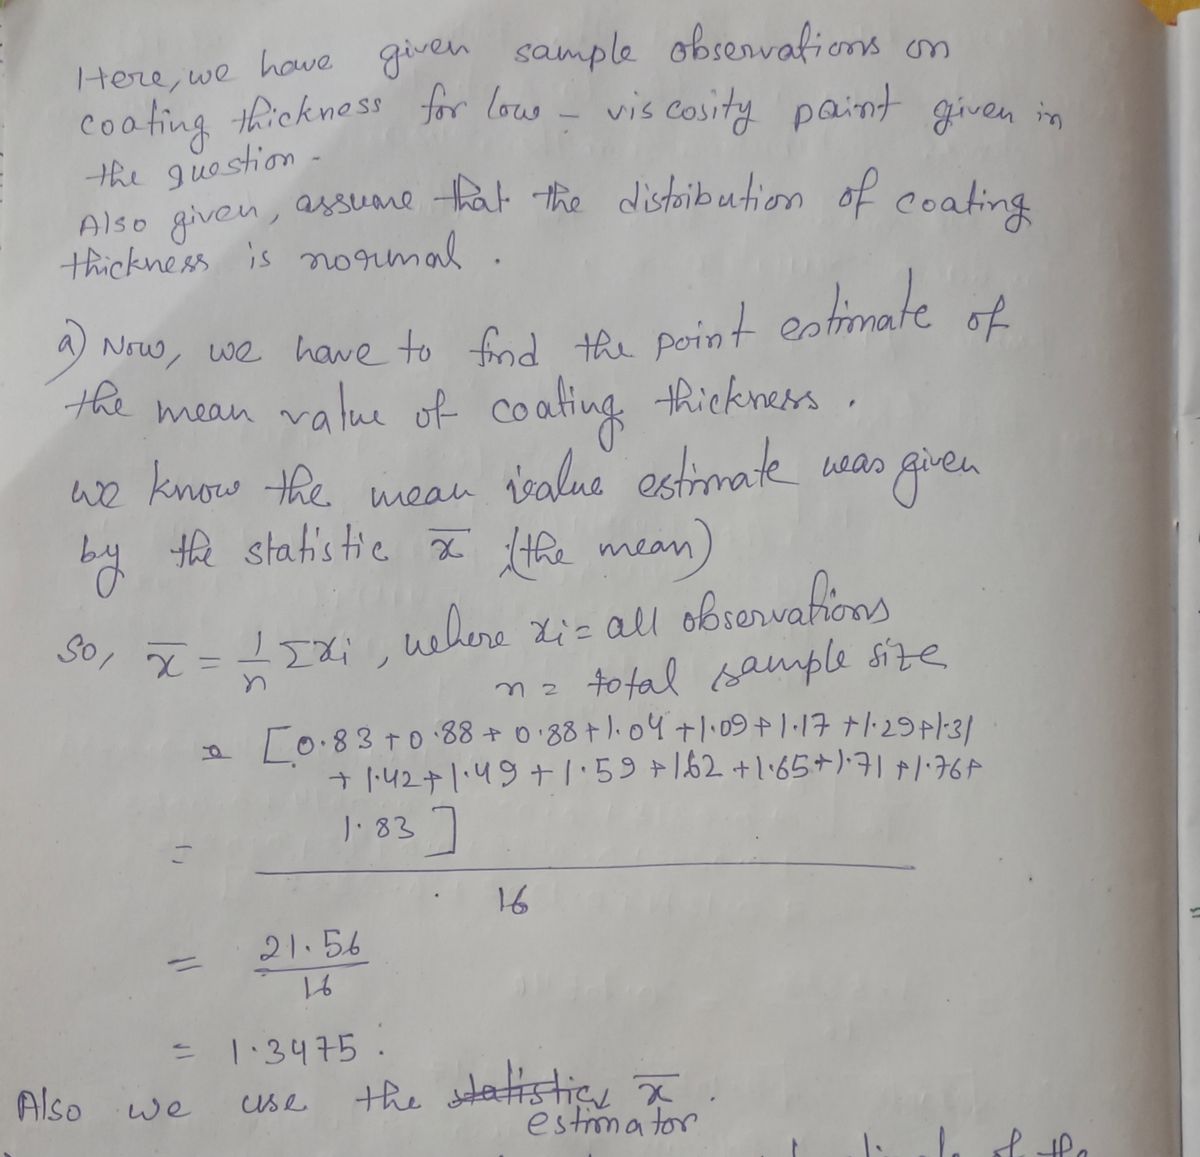 Here, we have given sample observations on
coating thickness for low - viscosity paint given in
the question -
Also given, assume that the distribution of coating
thickness is normal .
a) Now, we have to find the point estimate of
the mean value of coating thickness .
we know the mean value estimate was given
by the statistic x̄ (the mean)
So, x̄ = 1/n Σxi , where xi = all observations
n = total sample size
= [0.83 + 0.88 + 0.88 + 1.04 + 1.09 + 1.17 + 1.29 + 1.31
+ 1.42 + 1.49 + 1.59 + 1.62 + 1.65 + 1.71 + 1.76 +
1.83 ]
=
16
= 21.56
16
= 1.3475 .
Also we use the statistics x̄ .
estimator